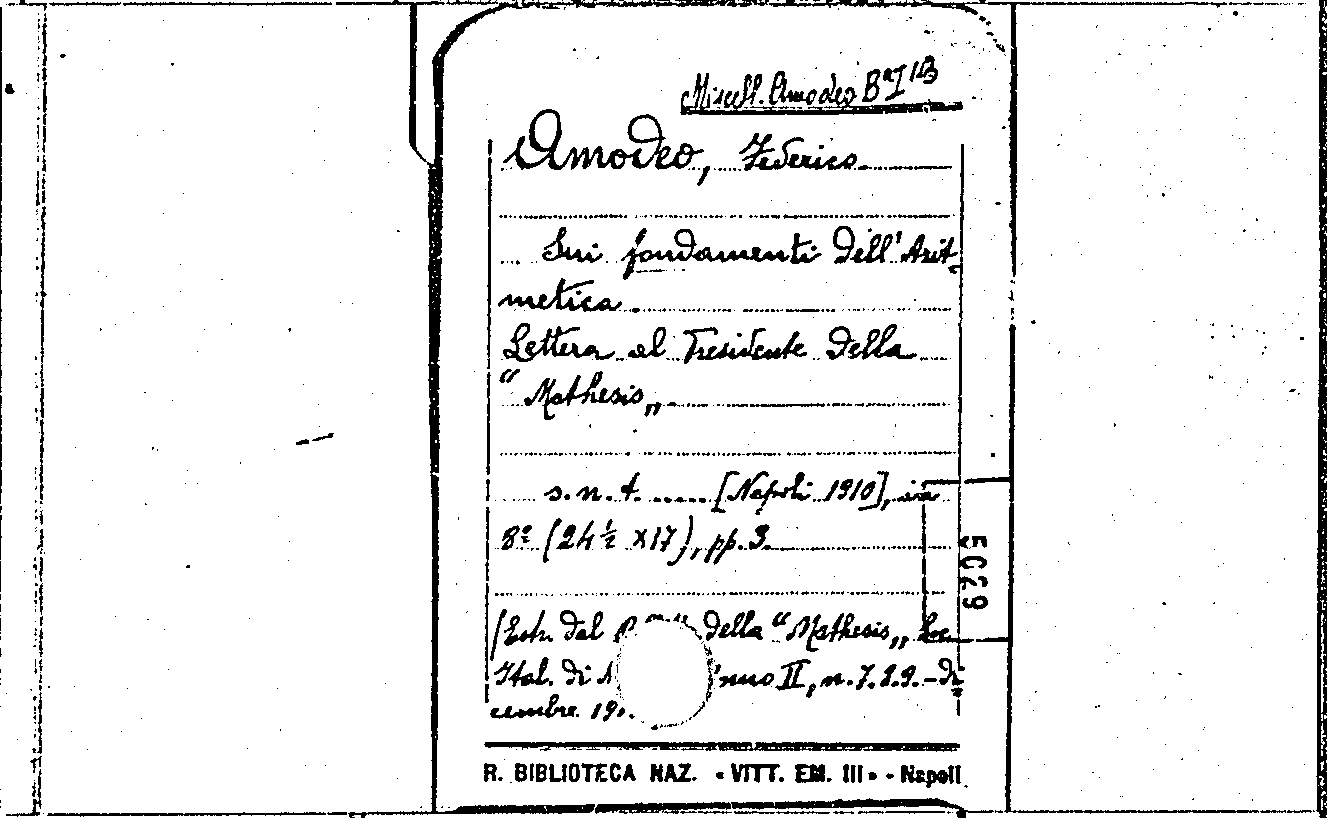 Miscell. Amodeo Bª I 1B
Amodeo, Federico
Sui fondamenti dell' Arit-
metica.
Lettera al Presidente della
“Mathesis„
s.n.t. ..... [Napoli 1910], in
8º (24½ x17), pp. 3.
5029
(Estr. dal della “Mathesis„ Soc.
Ital. di II, n. 7.8.9. - di-
cembre
R. BIBLIOTECA NAZ. « VITT. EM. III » - Napoli